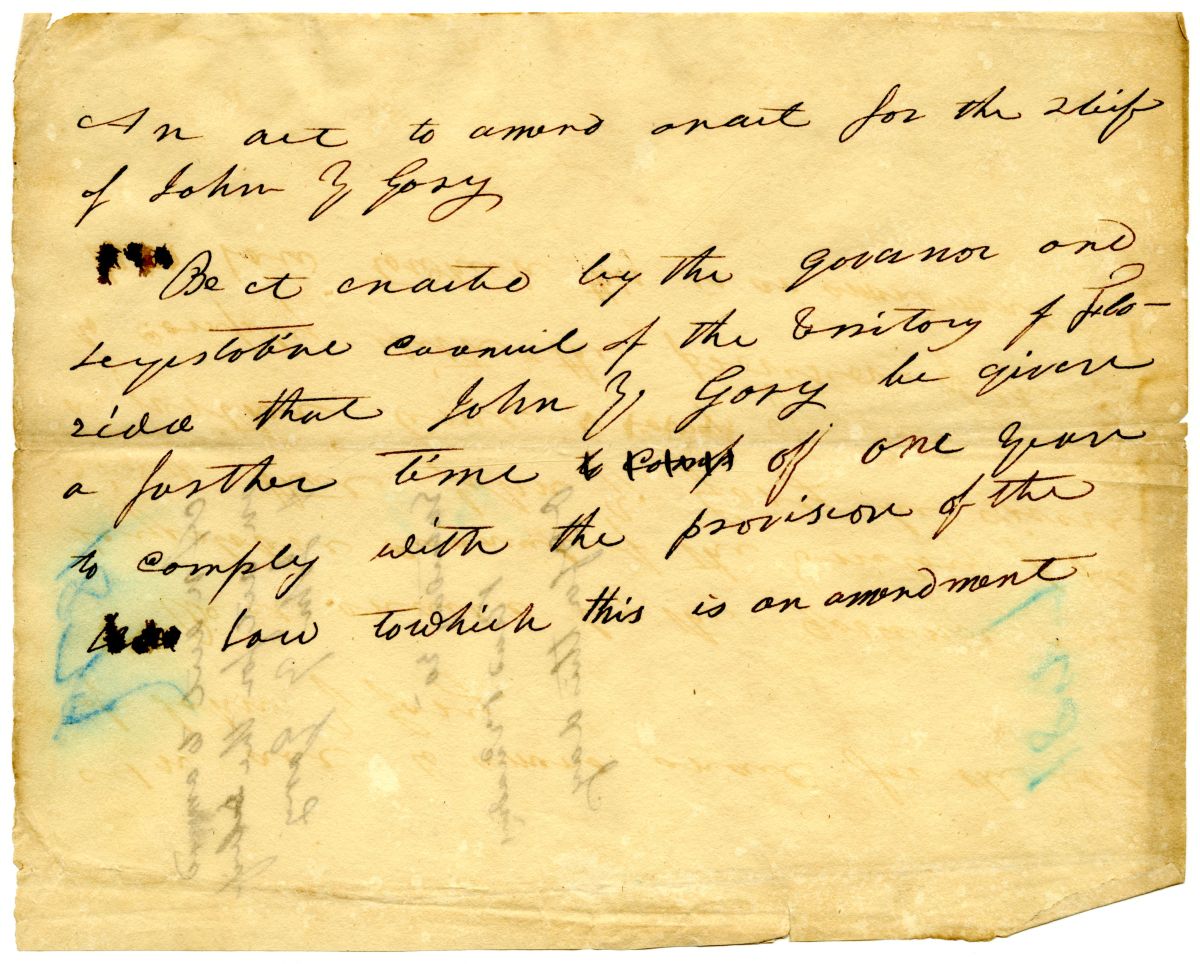 An act to amend anact for the relief
of John Y Gory
Be it enacted by the govenor and
Legestative council of the Territory of Flo-
rida that John Y Gory be given
a further time to comply off one Year
to comply with the provision of the
law towhich this is an amendment